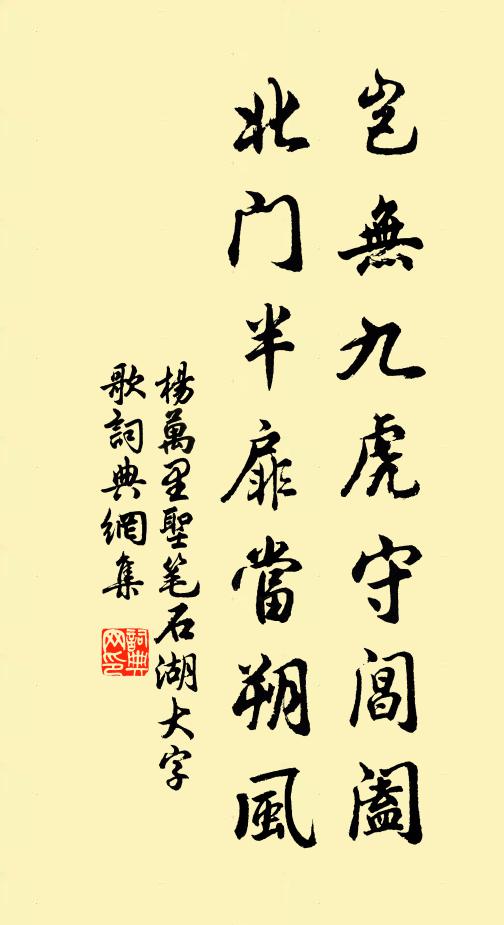 豈無九虎守閶闔
北門半扉當朔風
楊萬里聖笔石湖大字
歌詞典網集
詞典网印